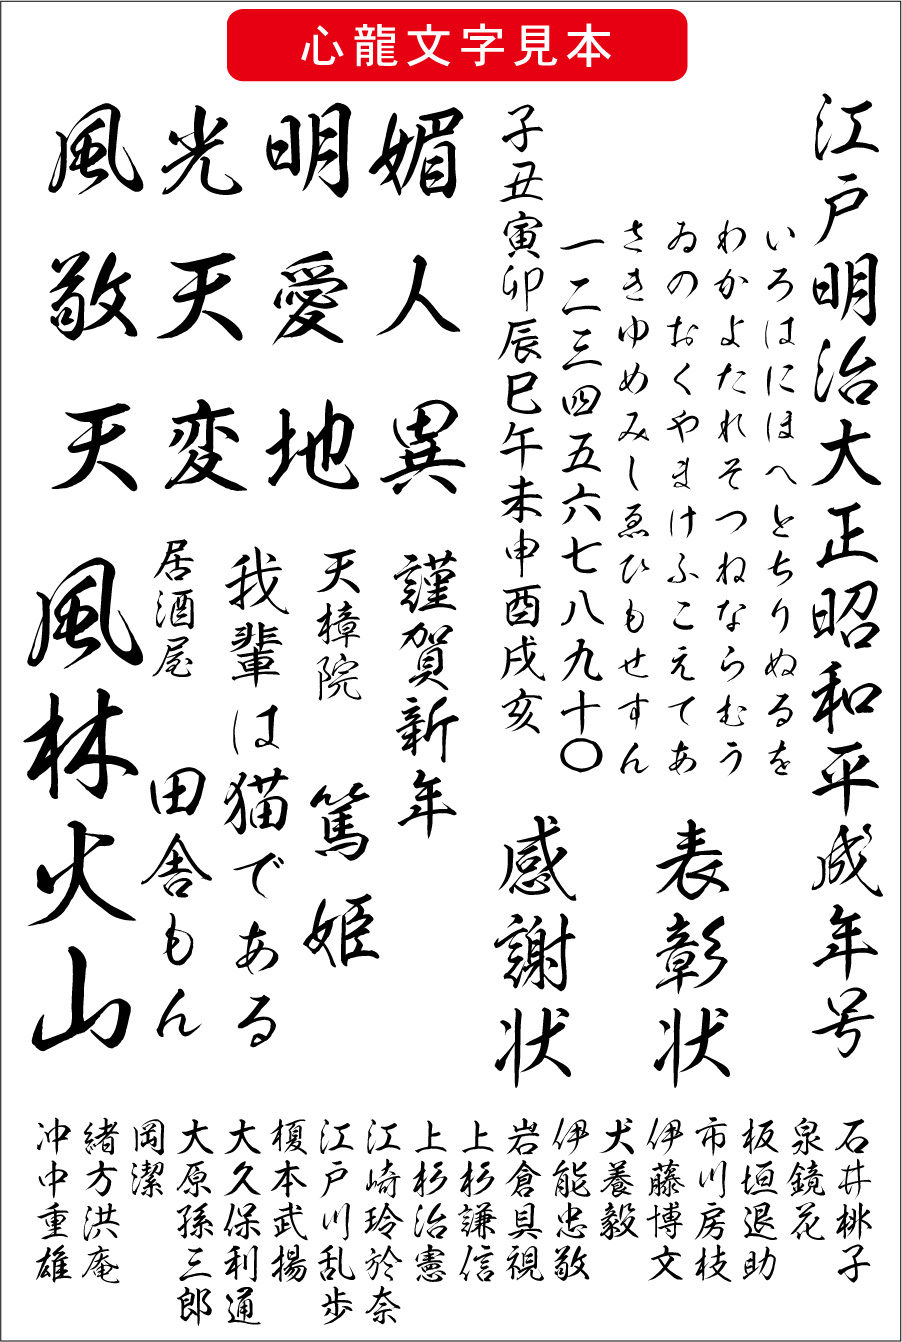 心龍文字見本
江戸明治大正昭和平成年号
いろはにほへとちりぬるを
わかよたれそつねならむう
ゐのおくやまけふこえてあ
さきゆめみしゑひもせすん
一二三四五六七八九十〇
子丑寅卯辰巳午未申酉戌亥
表彰状
感謝状
風光明媚
敬天愛人
天変地異
謹賀新年
天樟院 篤姫
我輩は猫である
居酒屋 田舎もん
風林火山
石井桃子
泉鏡花
板垣退助
市川房枝
伊藤博文
犬養毅
伊能忠敬
岩倉具視
上杉謙信
上杉治憲
江崎玲於奈
江戸川乱歩
榎本武揚
大久保利通
大原孫三郎
岡潔
緒方洪庵
沖中重雄